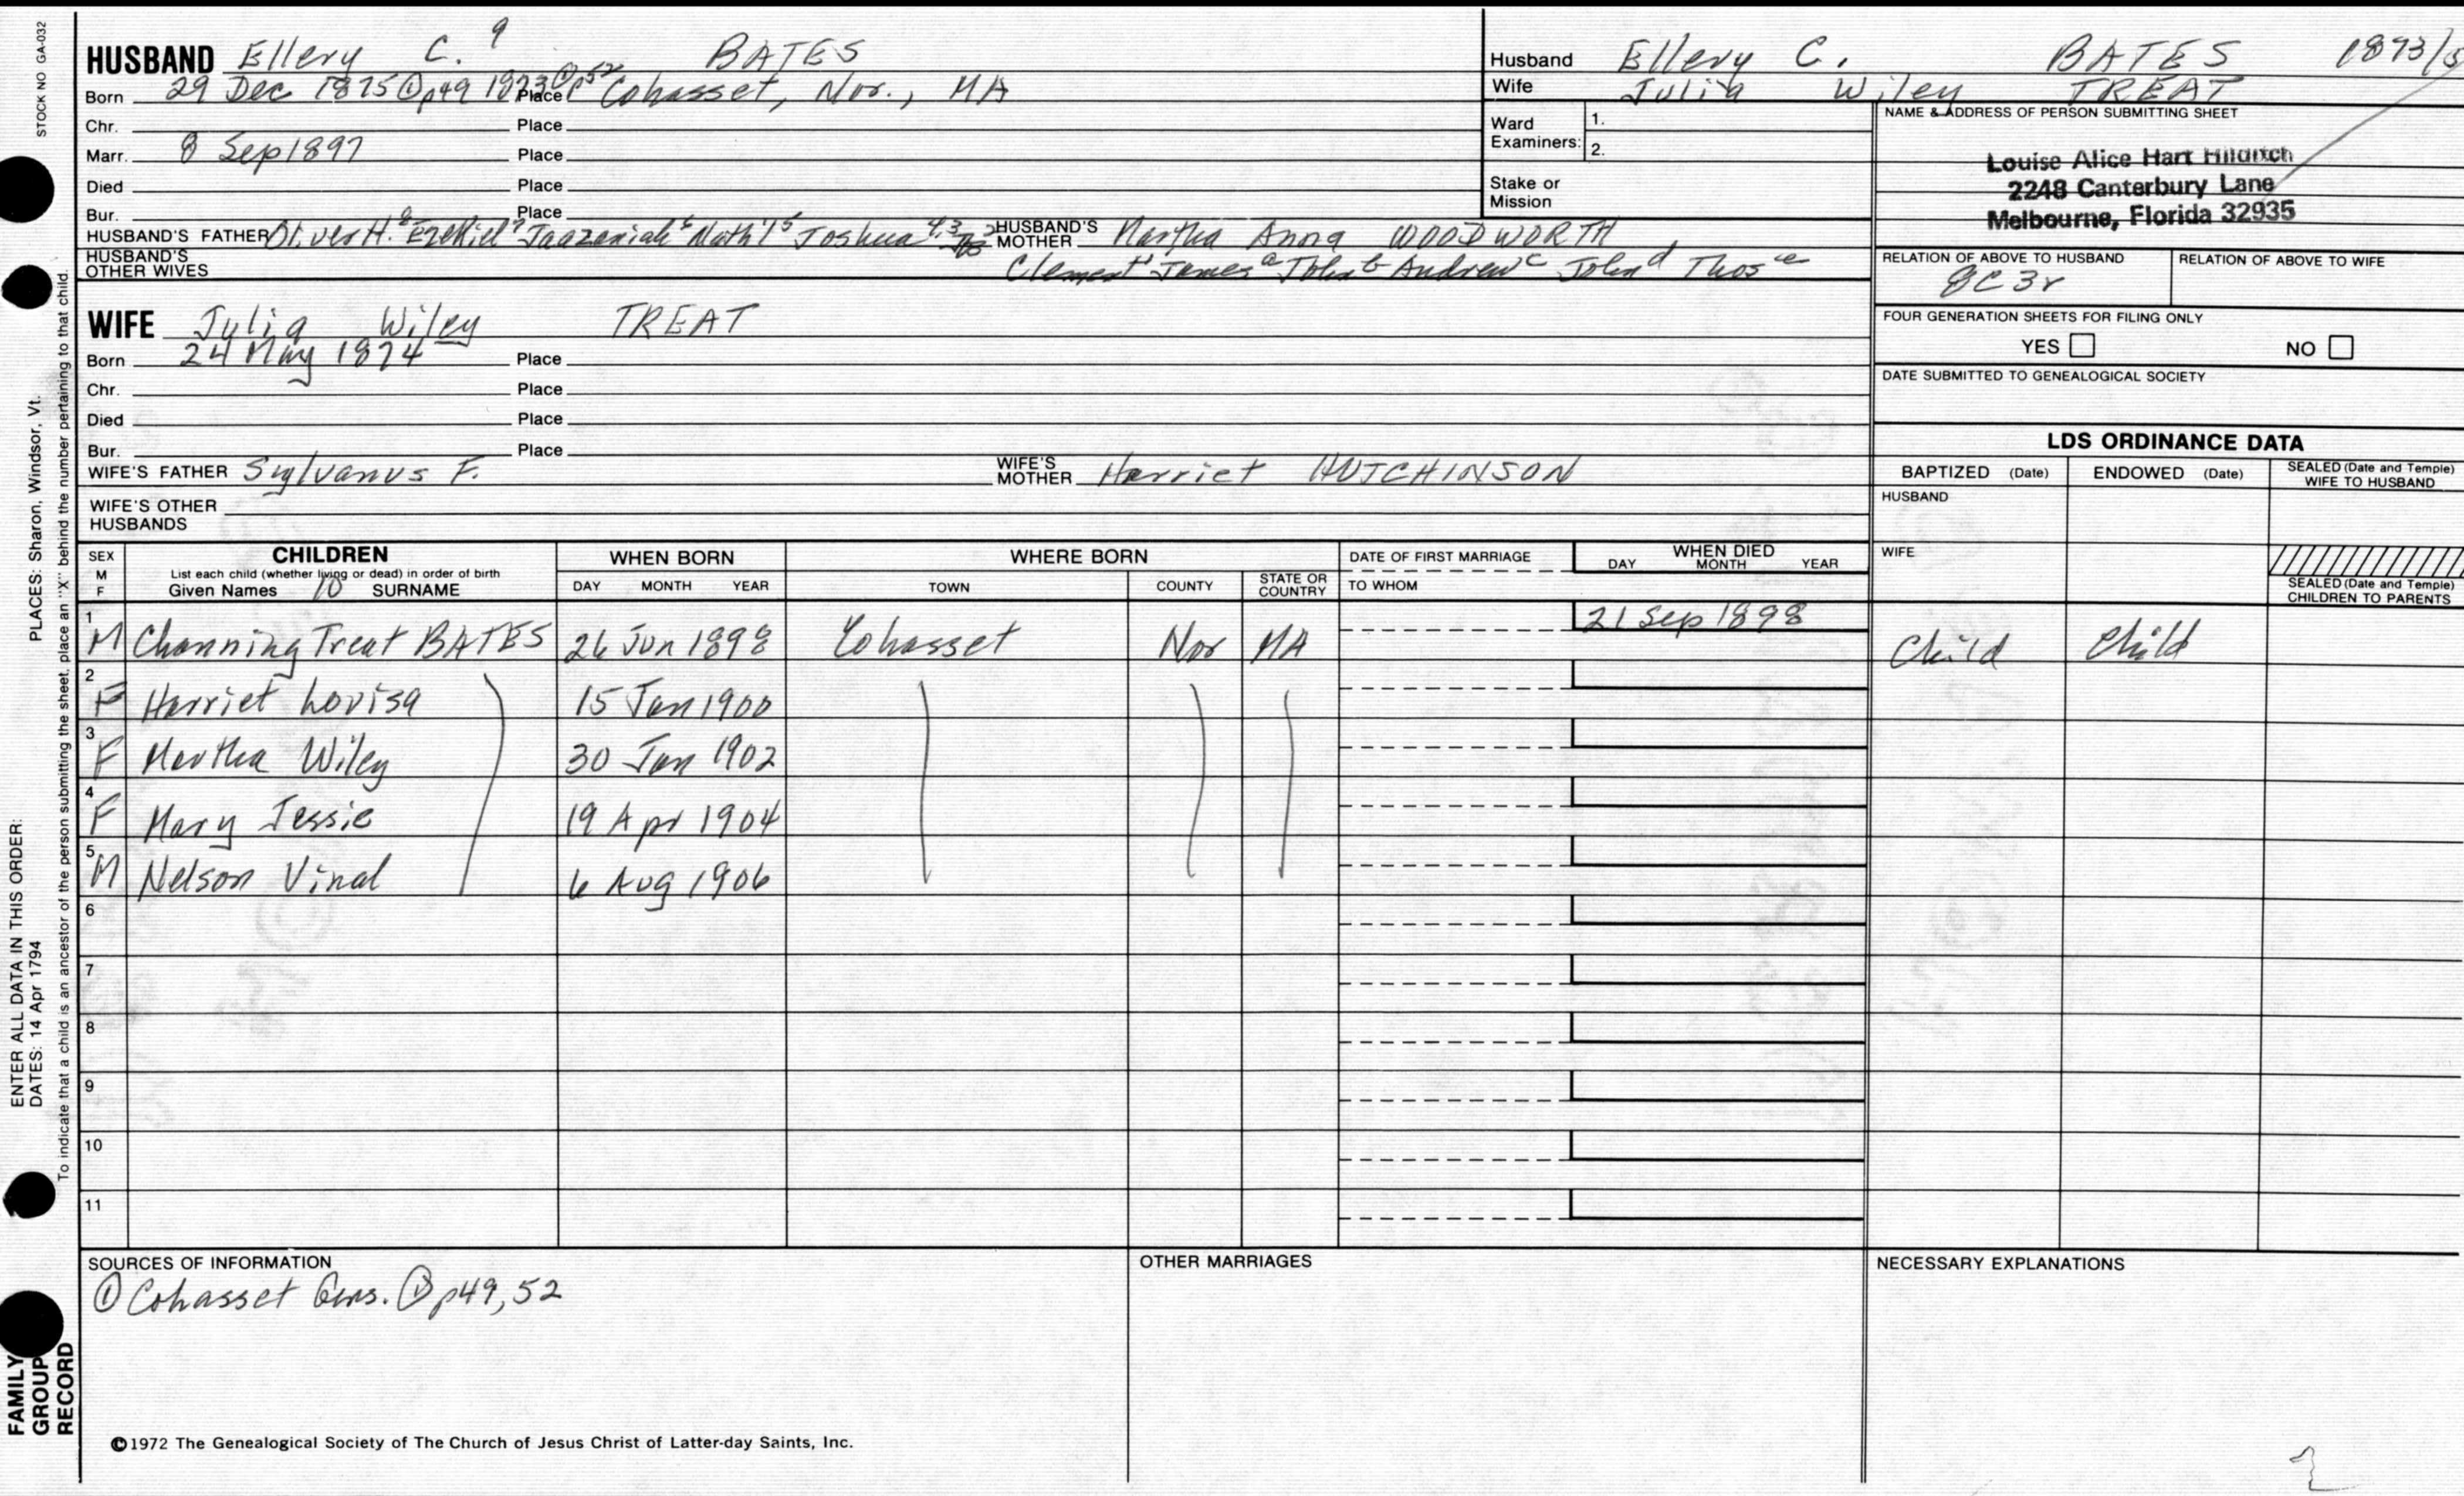 STOCK NO GA-032
HUSBAND Ellery C. 9 BATES
Born 29 Dec 1875 ① p49 1873 ① p52 Place Cohasset, Nor., MA
Chr. Place
Marr. 8 Sep 1897 Place
Died Place
Bur. Place
HUSBAND'S FATHER Oliver H. 8 Ezekiel 7 Jaazaniah 6 Nath'l 5 Joshua 4,3 HUSBAND'S MOTHER Martha Anna WOODWORTH
HUSBAND'S OTHER WIVES Clement 1 James a John b Andrew c John d Thos e
WIFE Julia Wiley TREAT
Born 24 May 1874 Place
Chr. Place
Died Place
Bur. Place
WIFE'S FATHER Sylvanus F. WIFE'S MOTHER Harriet HUTCHINSON
WIFE'S OTHER HUSBANDS
Husband Ellery C. BATES 1873/5
Wife Julia Wiley TREAT
Ward Examiners: 1.
2.
Stake or Mission
NAME & ADDRESS OF PERSON SUBMITTING SHEET
Louise Alice Hart Hilditch
2248 Canterbury Lane
Melbourne, Florida 32935
RELATION OF ABOVE TO HUSBAND RELATION OF ABOVE TO WIFE
8C3r
FOUR GENERATION SHEETS FOR FILING ONLY
YES NO
DATE SUBMITTED TO GENEALOGICAL SOCIETY
LDS ORDINANCE DATA
BAPTIZED (Date) ENDOWED (Date) SEALED (Date and Temple) WIFE TO HUSBAND
HUSBAND
WIFE
SEALED (Date and Temple) CHILDREN TO PARENTS
SEX M F CHILDREN WHEN BORN WHERE BORN DATE OF FIRST MARRIAGE WHEN DIED
List each child (whether living or dead) in order of birth
Given Names 10 SURNAME DAY MONTH YEAR TOWN COUNTY STATE OR COUNTRY TO WHOM DAY MONTH YEAR
1 M Channing Treat BATES 26 Jun 1898 Cohasset Nor MA 21 Sep 1898 Child Child
2 F Harriet Lovisa 15 Jan 1900
3 F Martha Wiley 30 Jan 1902
4 F Mary Jessie 19 Apr 1904
5 M Nelson Vinal 6 Aug 1906
6
7
8
9
10
11
SOURCES OF INFORMATION OTHER MARRIAGES NECESSARY EXPLANATIONS
① Cohasset Gens. ① p49, 52
©1972 The Genealogical Society of The Church of Jesus Christ of Latter-day Saints, Inc.
ENTER ALL DATA IN THIS ORDER:
DATES: 14 Apr 1794
PLACES: Sharon, Windsor, Vt.
To indicate that a child is an ancestor of the person submitting the sheet, place an "X" behind the number pertaining to that child.
FAMILY GROUP RECORD